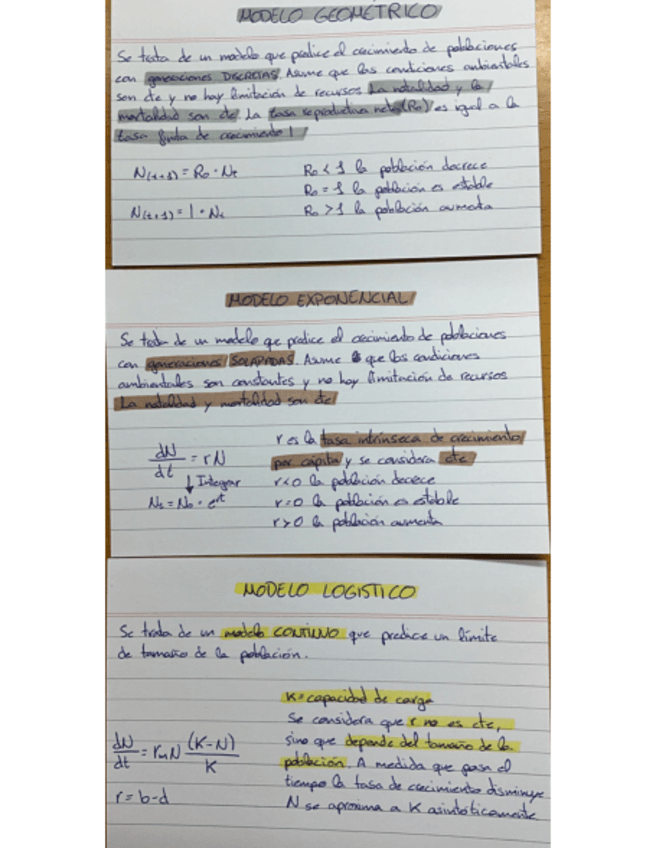 MODELO GEOMETRICO
Se trata de un modelo que predice el crecimiento de poblaciones
con generaciones DISCRETAS. Asume que las condiciones ambientales
son cte y no hay limitación de recursos La natalidad y la
mortalidad son cte. La tasa reproductiva neta (Ro) es igual a la
tasa finita de crecimiento l
N(t+1) = Ro · Nt
Ro < 1 la población decrece
Ro = 1 la población es estable
N(t+1) = l · Nt
Ro > 1 la población aumenta
MODELO EXPONENCIAL
Se trata de un modelo que predice el crecimiento de poblaciones
con generaciones SOLAPADAS. Asume que las condiciones
ambientales son constantes y no hay limitación de recursos
La natalidad y mortalidad son cte
r es la tasa intrínseca de crecimiento
dN/dt = rN
per cápita y se considera cte
↓ Integrar
r<0 la población decrece
Nt = No · e^rt
r=0 la población es estable
r>0 la población aumenta
MODELO LOGISTICO
Se trata de un modelo CONTINUO que predice un límite
de tamaño de la población.
K = capacidad de carga
Se considera que r no es cte,
dN/dt = rmN (K-N)/K
sino que depende del tamaño de la
población. A medida que pasa el
tiempo la tasa de crecimiento disminuye
r = b-d
N se aproxima a K asintóticamente